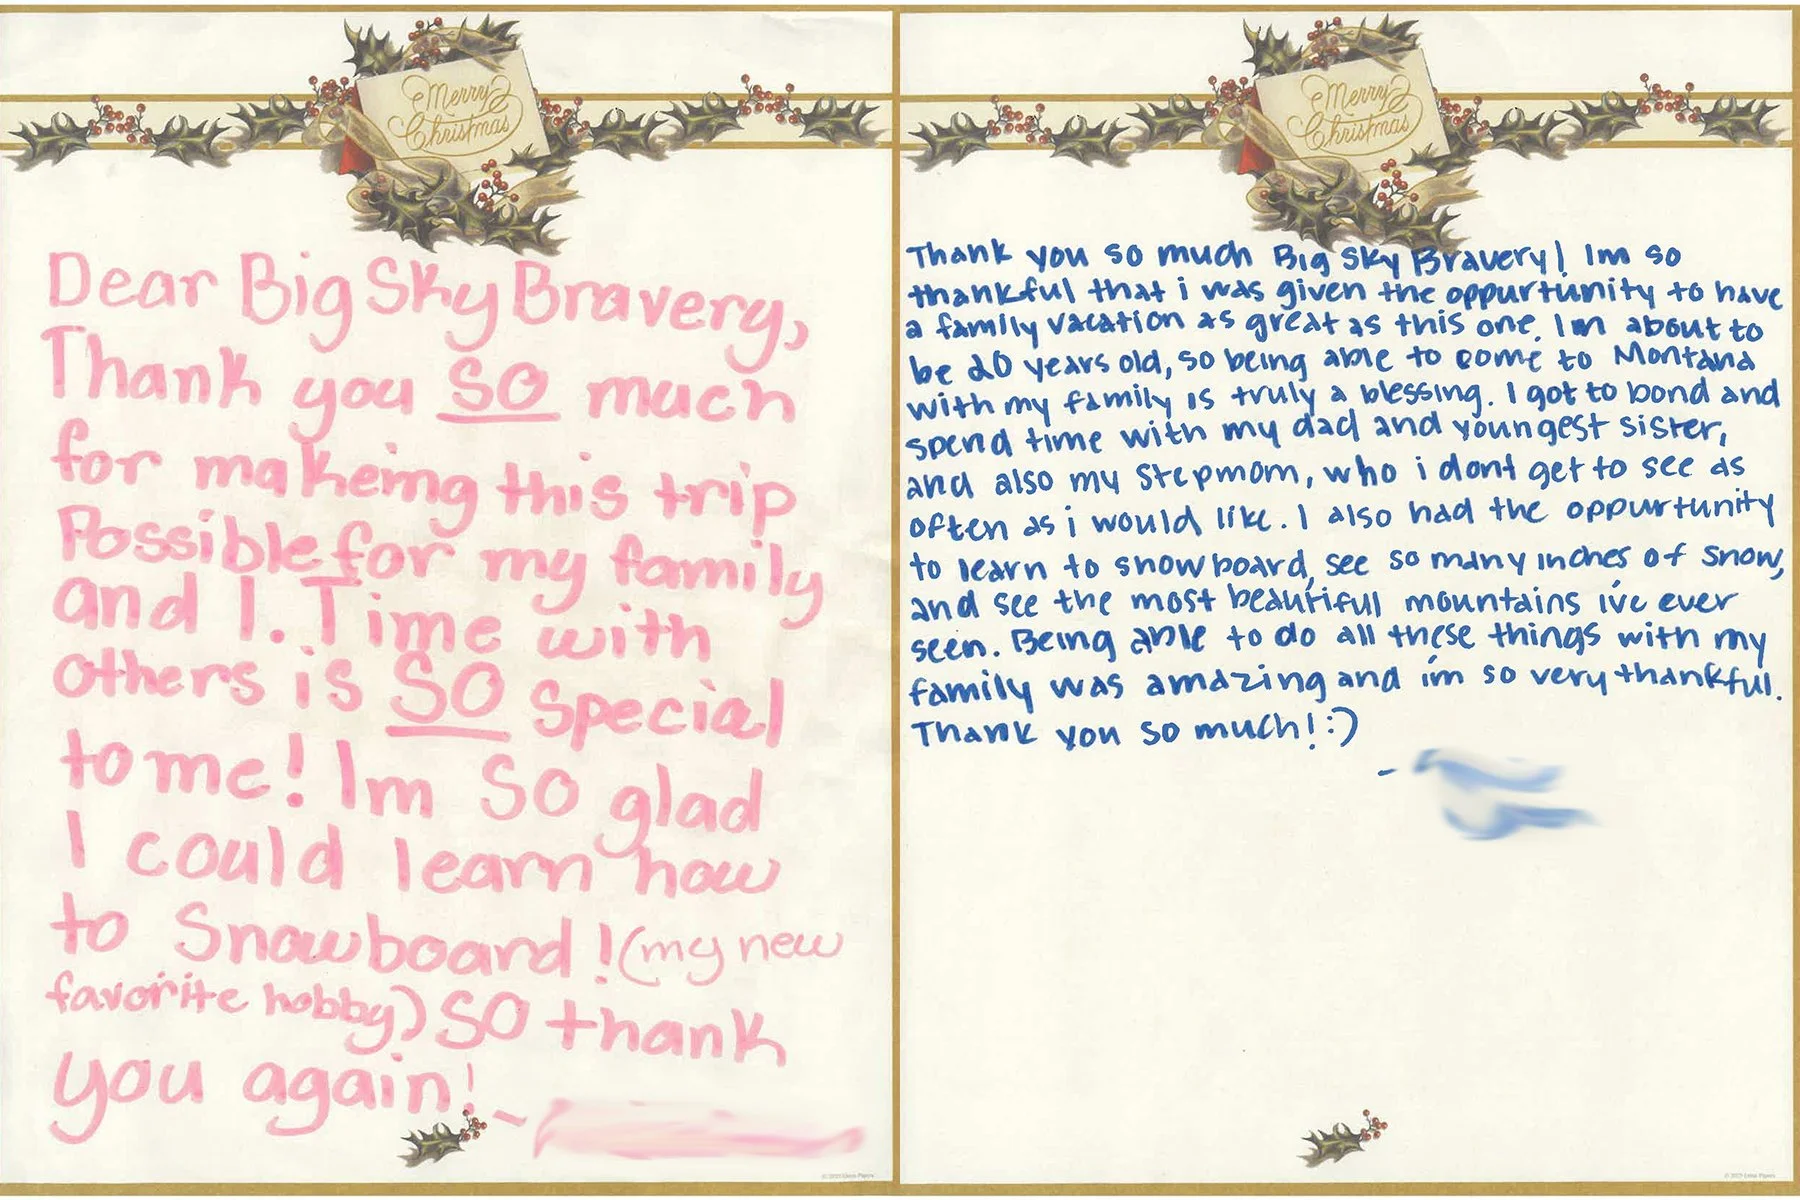 Merry
Christmas
Dear Big Sky Bravery,
Thank you SO much
for makeing this trip
Possible for my family
and I. Time with
others is SO special
to me! Im SO glad
I could learn how
to Snowboard! (my new
favorite hobby) SO thank
you again! -
Merry
Christmas
Thank you so much Big Sky Bravery! Im so
thankful that i was given the oppurtunity to have
a family vacation as great as this one. Im about to
be 20 years old, so being able to come to Montana
with my family is truly a blessing. I got to bond and
spend time with my dad and youngest sister,
and also my stepmom, who i dont get to see as
often as i would like. I also had the oppurtunity
to learn to snowboard, see so many inches of snow,
and see the most beautiful mountains i've ever
seen. Being able to do all these things with my
family was amazing and i'm so very thankful.
Thank you so much! :)
-